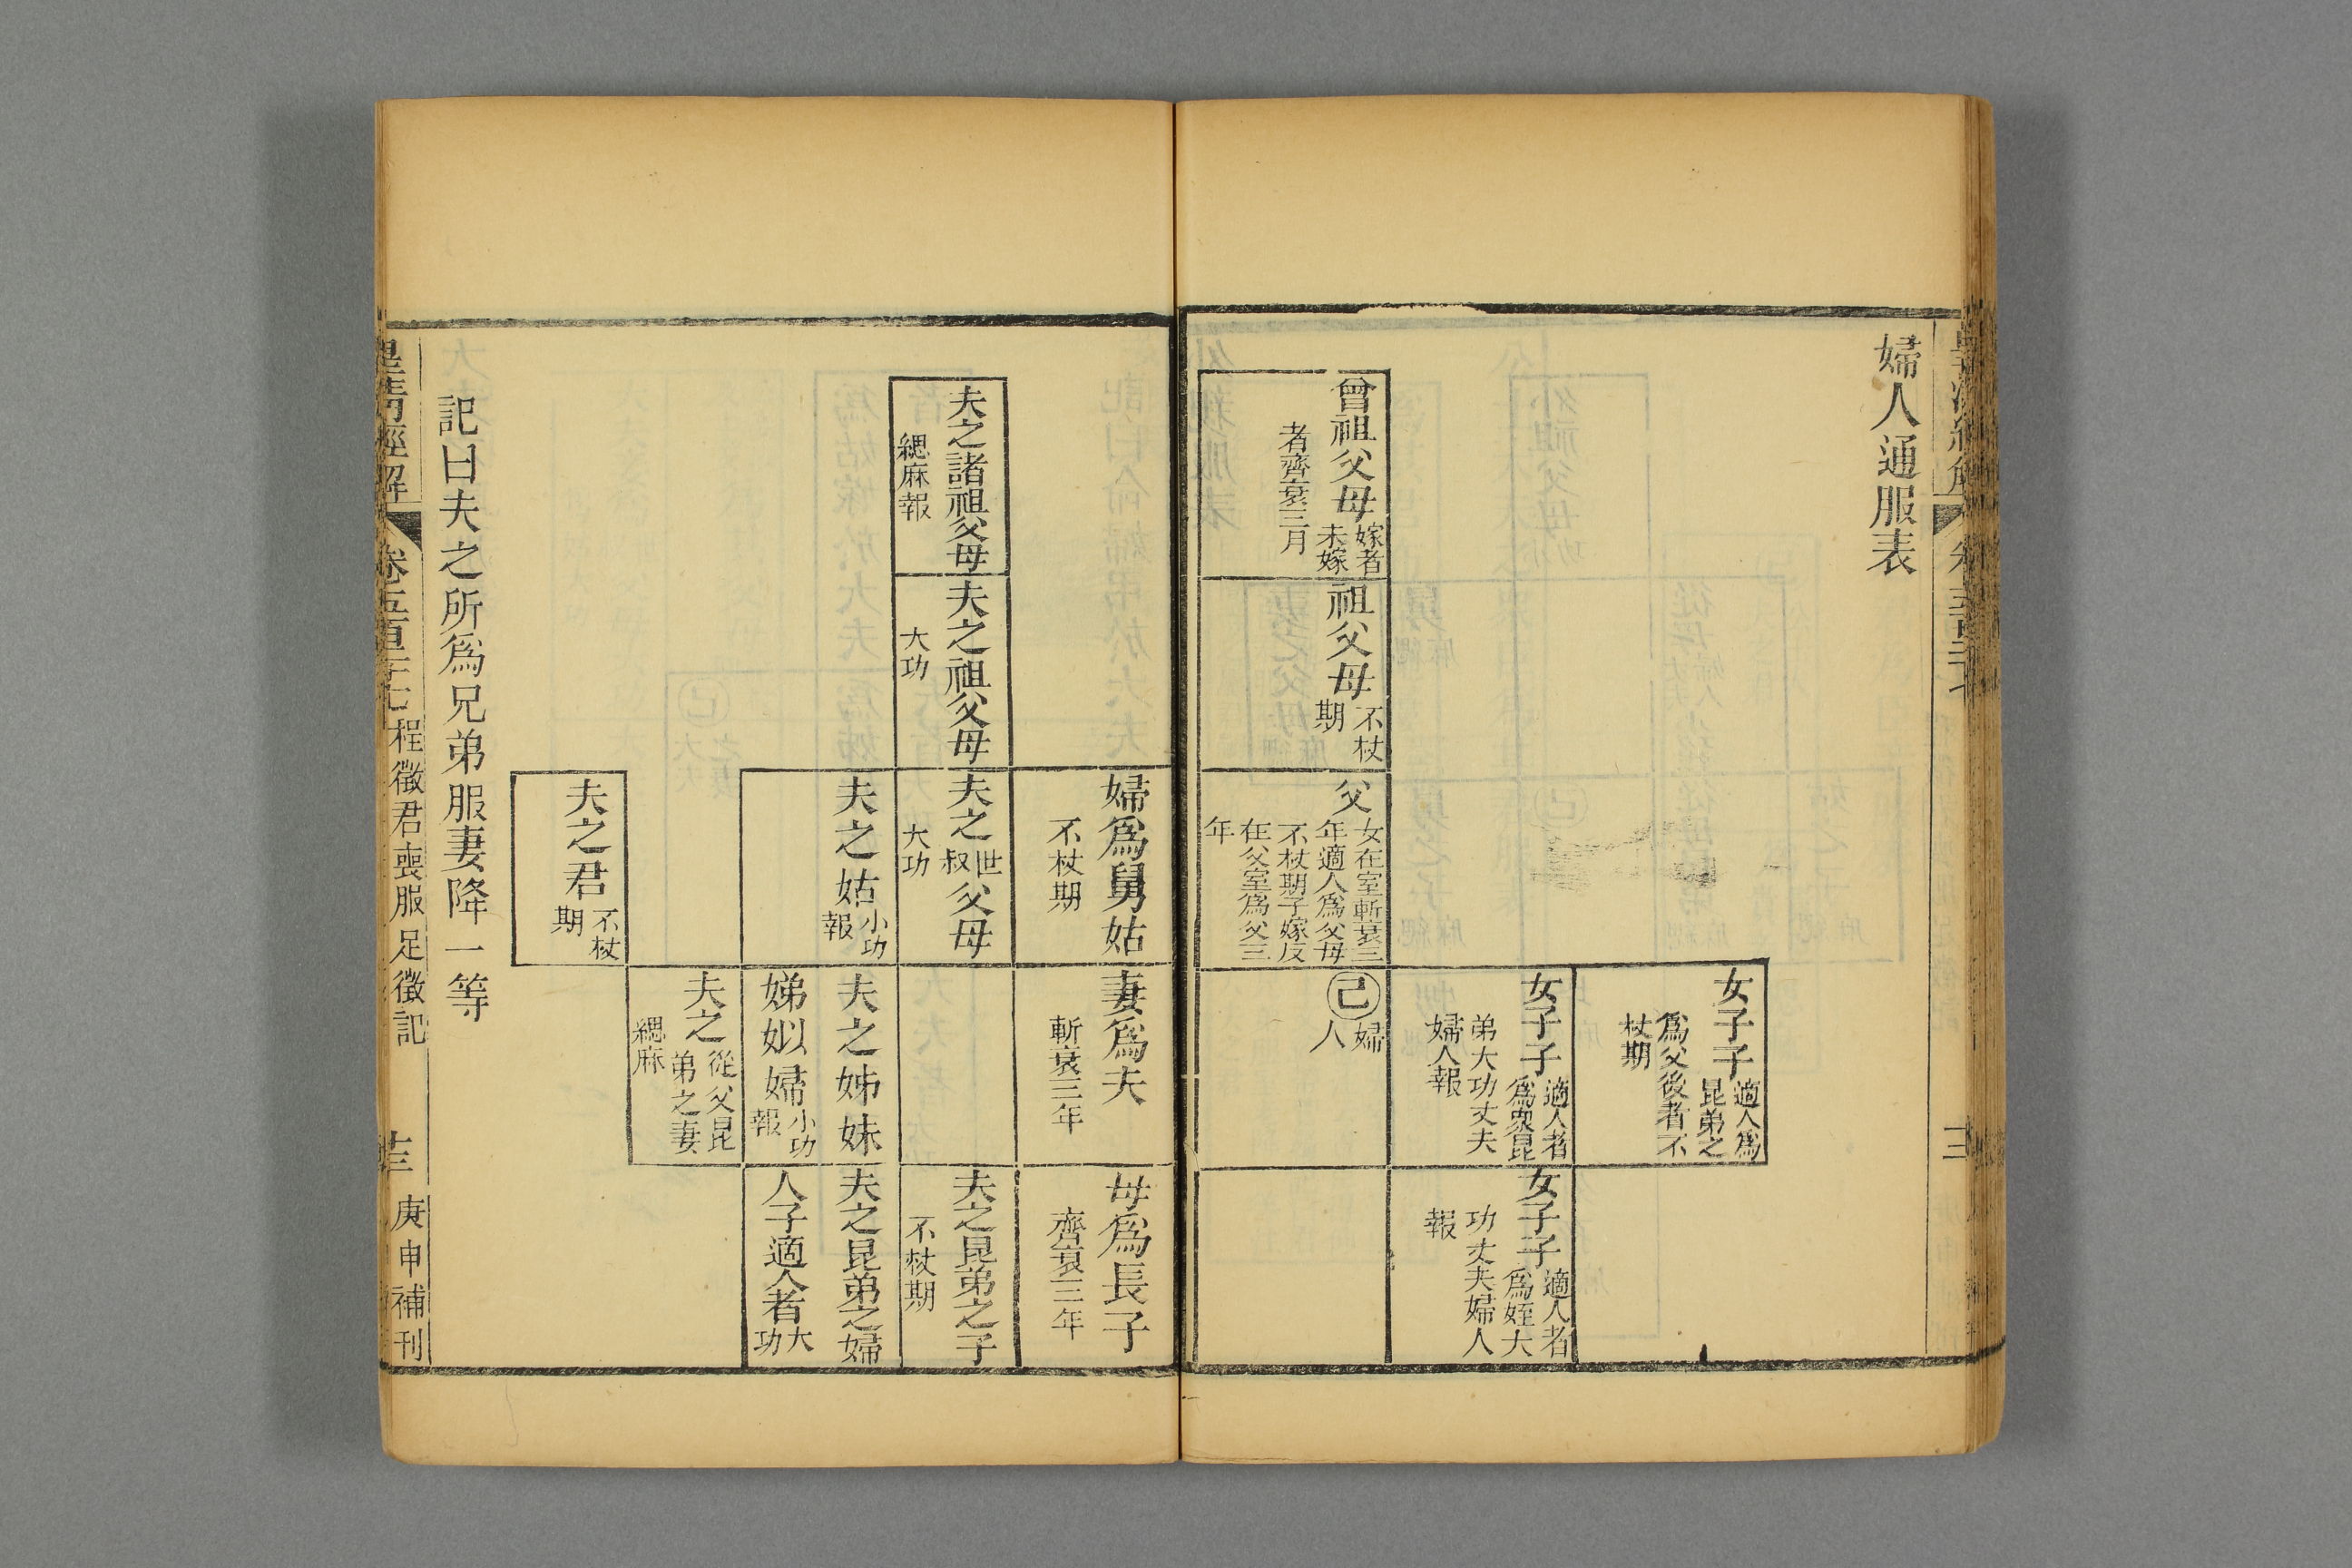 婦人通服表
女子子適人為昆弟之為父後者不杖期
女子子適人者為眾昆弟大功丈夫婦人報
女子子適人者為姪大功丈夫婦人報
曾祖父母嫁者未嫁者齊衰三月
祖父母不杖期
父女在室斬衰三年適人為父母不杖期子嫁反在父室為父三年
己婦人
婦為舅姑不杖期
妻為夫斬衰三年
母為長子齊衰三年
夫之諸祖父母緦麻報
夫之祖父母大功
夫之世叔父母大功
夫之昆弟之子不杖期
夫之姑小功報
夫之姊妹娣姒婦小功報
夫之昆弟之婦人子適人者大功
夫之從父昆弟之妻緦麻
夫之君不杖期
記曰夫之所為兄弟服妻降一等
皇清經解
卷五百二十七
程徵君喪服足徵記
庚申補刊